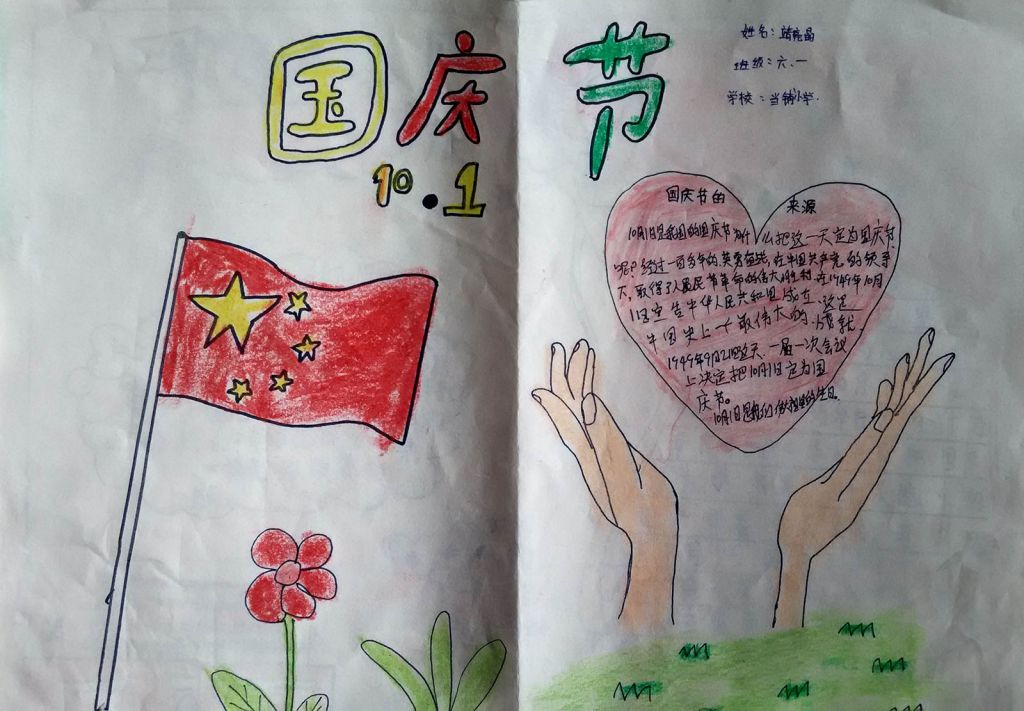 国庆节
10.1
姓名：
班级：六.一
学校：当铺小学.
国庆节的 来源
10月1日是我国的国庆节为什么把这一天定为国庆节
呢？经过一百多年的英勇奋战,在中国共产党的领导
下,取得了人民民革命的伟大胜利.在1949年10月
1日宣告中华人民共和国成立.这是
中国史上一个最伟大的
1949年9月21 这天.一届一次会议
上决定把10月1日定为国
庆节。
10月1日是我们 的生日。